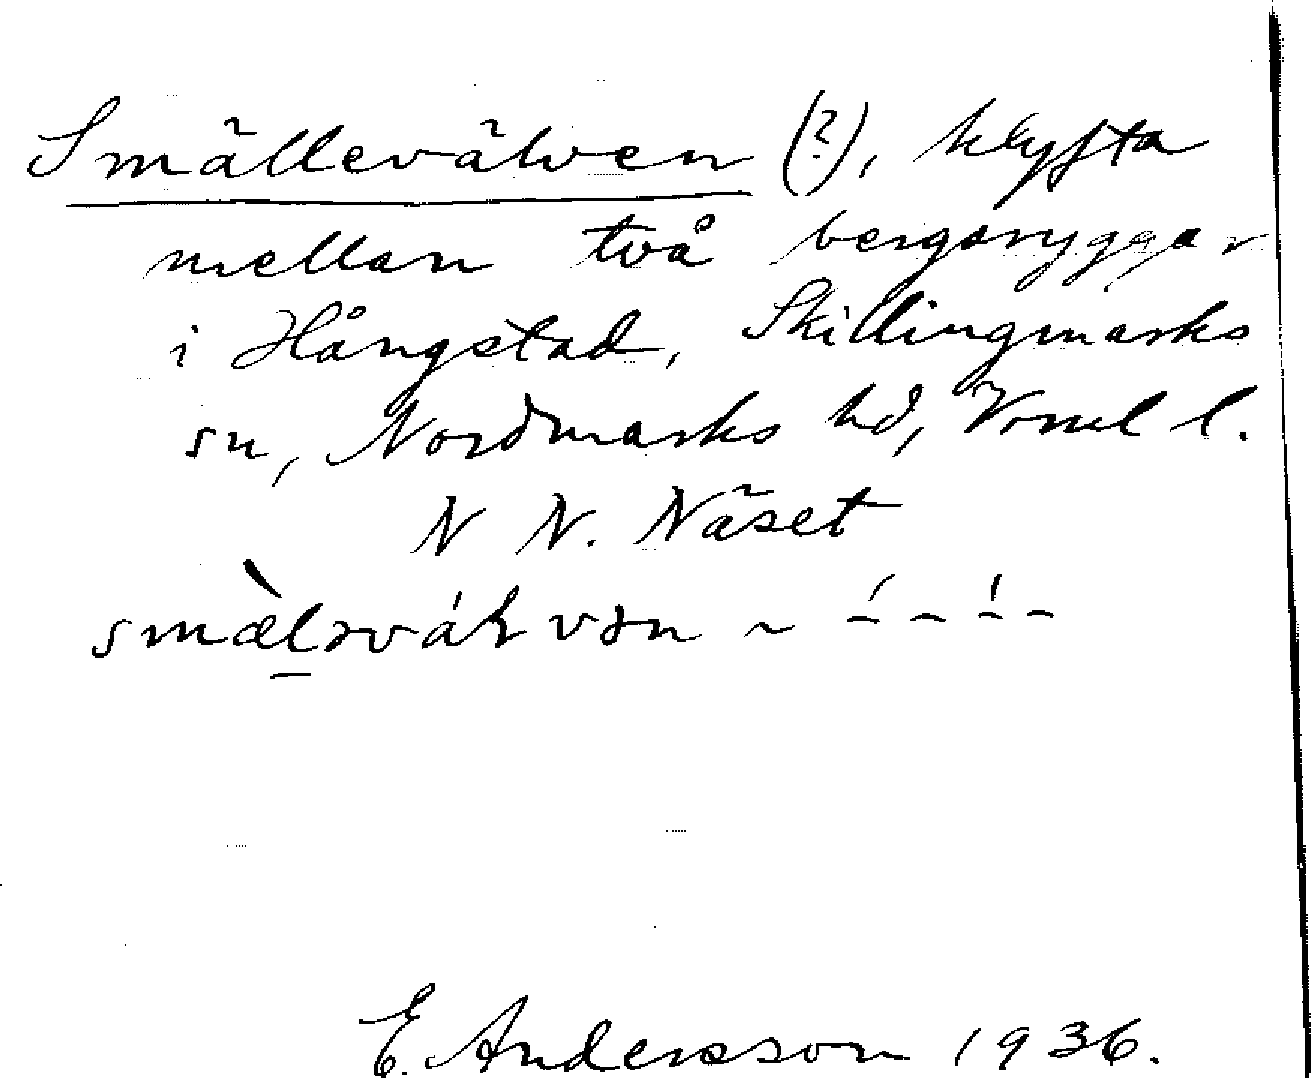 Smällevälven (?), klyfta
mellan två bergsryggar
i Hångstad, Skillingmarks
sn, Nordmarks hd, Vrml l.
N N. Näset
E. Andersson 1936.